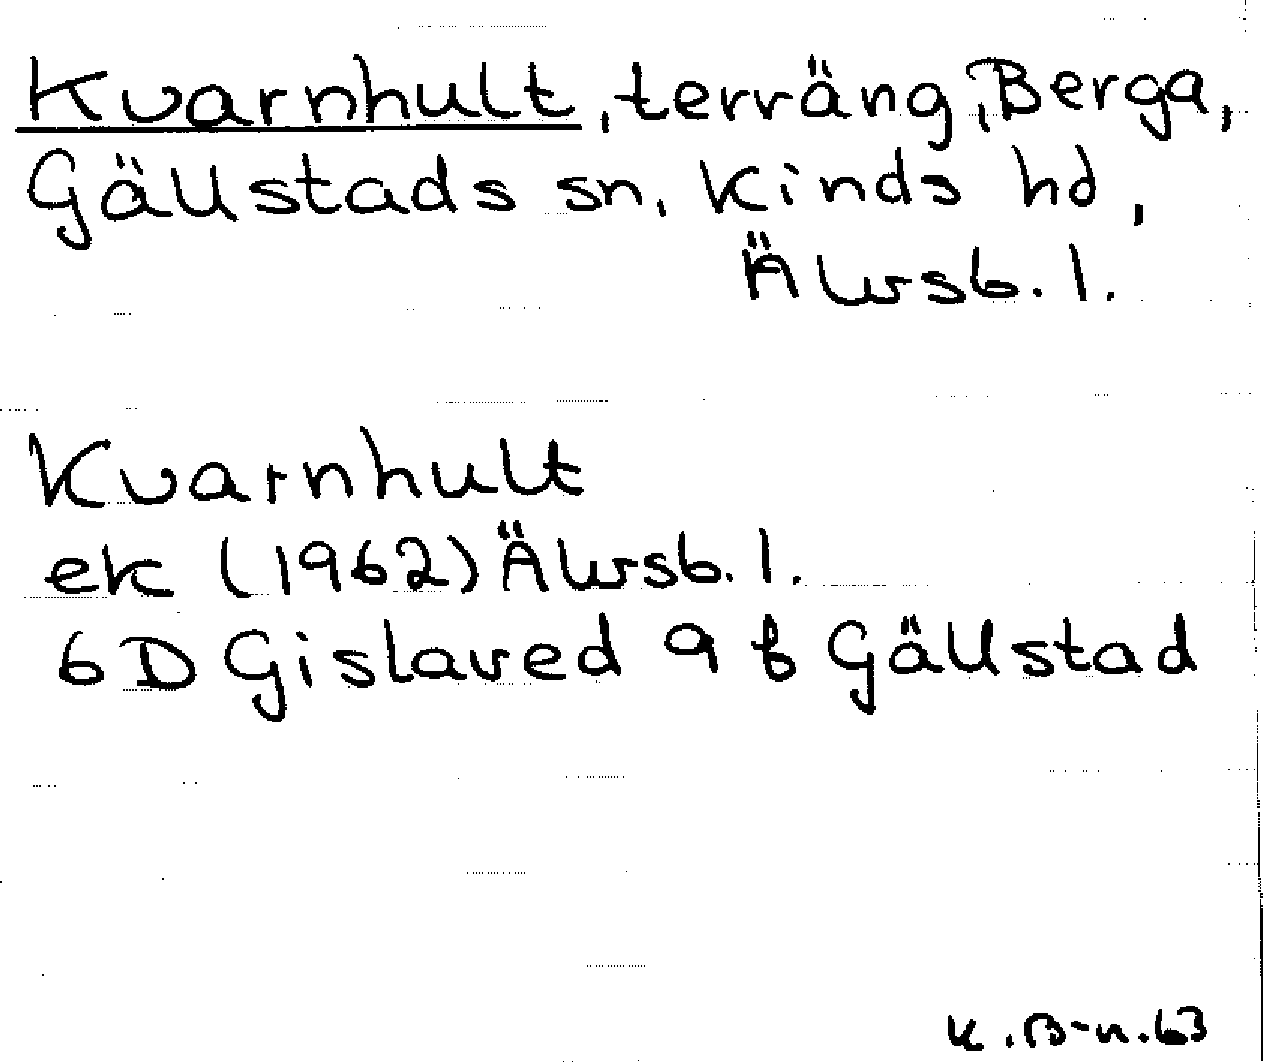 Kvarnhult, terräng, Berga,
Gällstads sn, Kinds hd,
Älvsb. l.
Kvarnhult
ek (1962) Älvsb. l.
6D Gislaved 9 b Gällstad
K.B-n.63